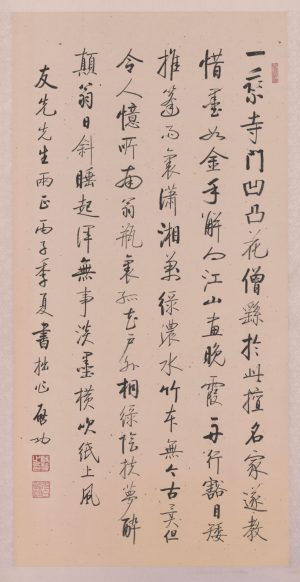 一乘寺門凹凸花僧繇於此擅名家遂教
惜墨如金手解向江山畫晚霞舟行豁目矮
推篷雨裏瀟湘萬綠濃水竹本無今古異但
令人憶所南翁瓶裏孤花戶外桐綠陰扶夢醉
顛翁日斜睡起渾無事淡墨橫吹紙上風
友先先生雨正丙子季夏書拙作啟功